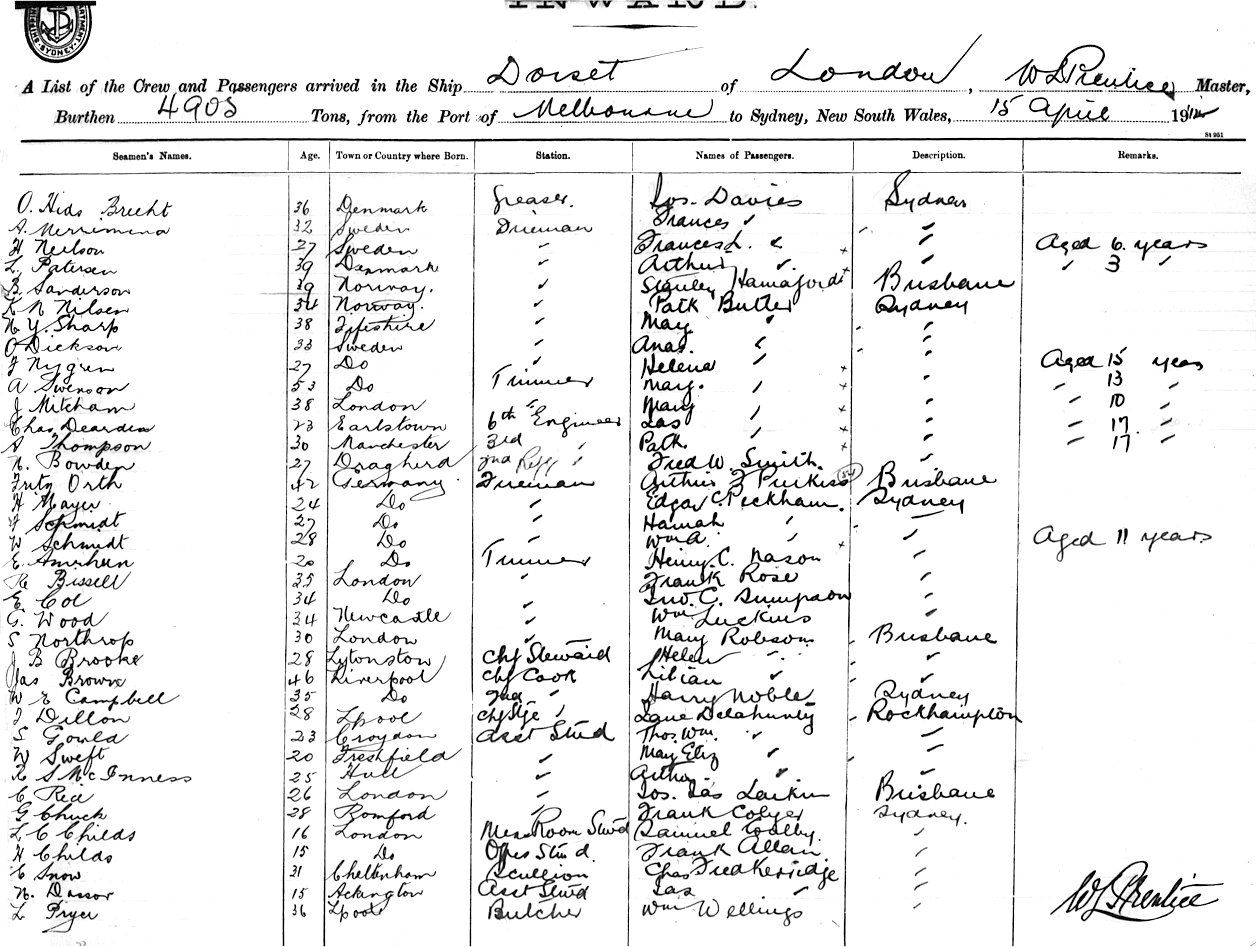 INWARD.
DEPARTMENT SYDNEY
A List of the Crew and Passengers arrived in the Ship Dorset of London, W L Prentice Master,
Burthen 4903 Tons, from the Port of Melbourne to Sydney, New South Wales, 15 April 1912
St 951
Seamen's Names. Age. Town or Country where Born. Station. Names of Passengers. Description. Remarks.
O. Hids Brecht 36 Denmark Greaser. Jos. Davies Sydney
A. 32 Sweden Frances " "
H Neilson 27 Sweden " Frances L. " x " Aged 6 years
L. Patersen 39 Denmark " Arthur " x " " 3 "
B Sanderson 39 Norway. " Stanley x Brisbane
K N Nilsen 34 Norway. " Patk Butler Sydney
N Y. Sharp 38 " May " "
O Dickson 33 Sweden " Anas. " "
J Nygren 27 Do " Helena " x " Aged 15 years
A Swenson 53 Do Trimmer Mary. " x " " 13 "
J Mitcham 38 London " Mary " x " " 10 "
Chas Dearden 23 Earlstown 6th Engineer Jas " x " " 17 "
A Thompson 30 Manchester 3rd " Patk " x " " 17 "
N. Bowden 27 2nd Refr " Fred W. Smith. "
Fritz Orth 42 Germany Fireman Arthur F Purkiss Brisbane
H Mayer 24 Do " Edgar C. Peckham. Sydney
F Schmidt 27 Do " Hannah " "
W Schmidt 28 Do " Wm A. " x " Aged 11 years
E. 20 Do Trimmer Henry. C. Nason "
R Bissell 35 London " Frank Rose "
E Col 34 Do Jno. C. "
G. Wood 34 Newcastle " Wm Luckins "
S Northrop 30 London " Mary Robson Brisbane
J B Brooke 28 Lytonstow Chf Steward Helen " "
Jas Brown 46 Liverpool Chf Cook Lilian " "
W E Campbell 35 Do 2nd " Harry Noble Sydney
J Dillon 28 Lpool Chf Stge " Jane Delahunty Rockhampton
S Gould 23 Croydon Asst Stwd Thos. Wm. " "
W Sweft 20 Freshfield " May Eliz " "
R S McInness 25 Hull " Arthur " "
C Reid 26 London " Jos. Jas Larkin Brisbane
G Chuck 28 Romford " Frank Colyer Sydney.
L C Childs 16 London Mess Room Stwd Samuel Colby. "
H Childs 15 Do Offrs Stwd. Frank Allan "
C Snow 31 Cheltenham Scullion Chas Fred Kerridge "
N. Dassor 15 Ackington Asst Stwd Jas " "
L Pryer 36 Lpool Butcher Wm Wellings "
W L Prentice